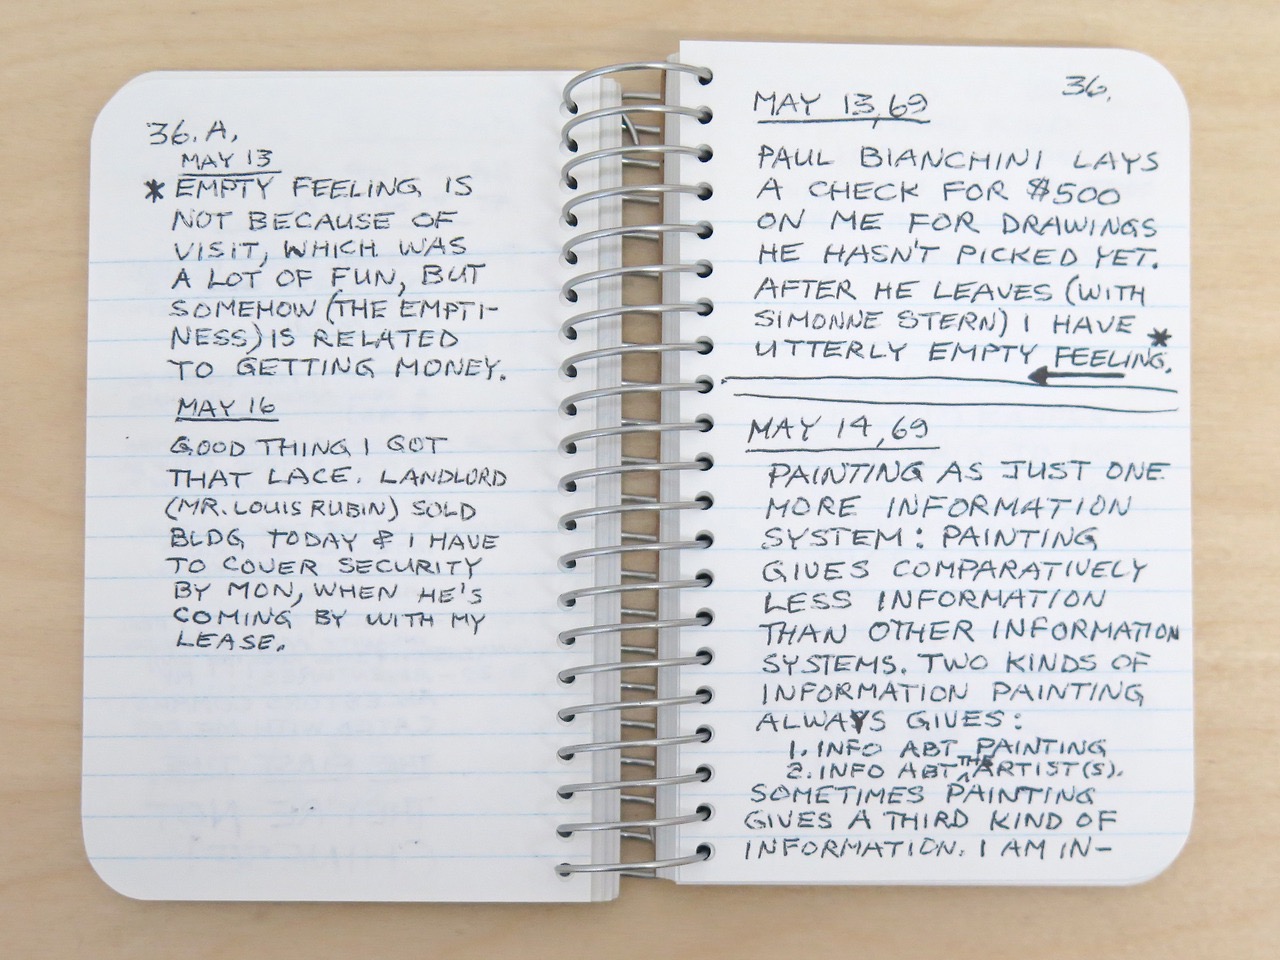 36.A.
MAY 13
* EMPTY FEELING IS
NOT BECAUSE OF
VISIT, WHICH WAS
A LOT OF FUN, BUT
SOMEHOW (THE EMPTI-
NESS) IS RELATED
TO GETTING MONEY.
MAY 16
GOOD THING I GOT
THAT LACE. LANDLORD
(MR. LOUIS RUBIN) SOLD
BLDG TODAY & I HAVE
TO COVER SECURITY
BY MON, WHEN HE'S
COMING BY WITH MY
LEASE.
36.
MAY 13, 69
PAUL BIANCHINI LAYS
A CHECK FOR $500
ON ME FOR DRAWINGS
HE HASN'T PICKED YET.
AFTER HE LEAVES (WITH
SIMONNE STERN) I HAVE
UTTERLY EMPTY FEELING.*
MAY 14, 69
PAINTING AS JUST ONE
MORE INFORMATION
SYSTEM: PAINTING
GIVES COMPARATIVELY
LESS INFORMATION
THAN OTHER INFORMATION
SYSTEMS. TWO KINDS OF
INFORMATION PAINTING
ALWAYS GIVES:
1. INFO ABT PAINTING
2. INFO ABT THE ARTIST(S).
SOMETIMES PAINTING
GIVES A THIRD KIND OF
INFORMATION. I AM IN-